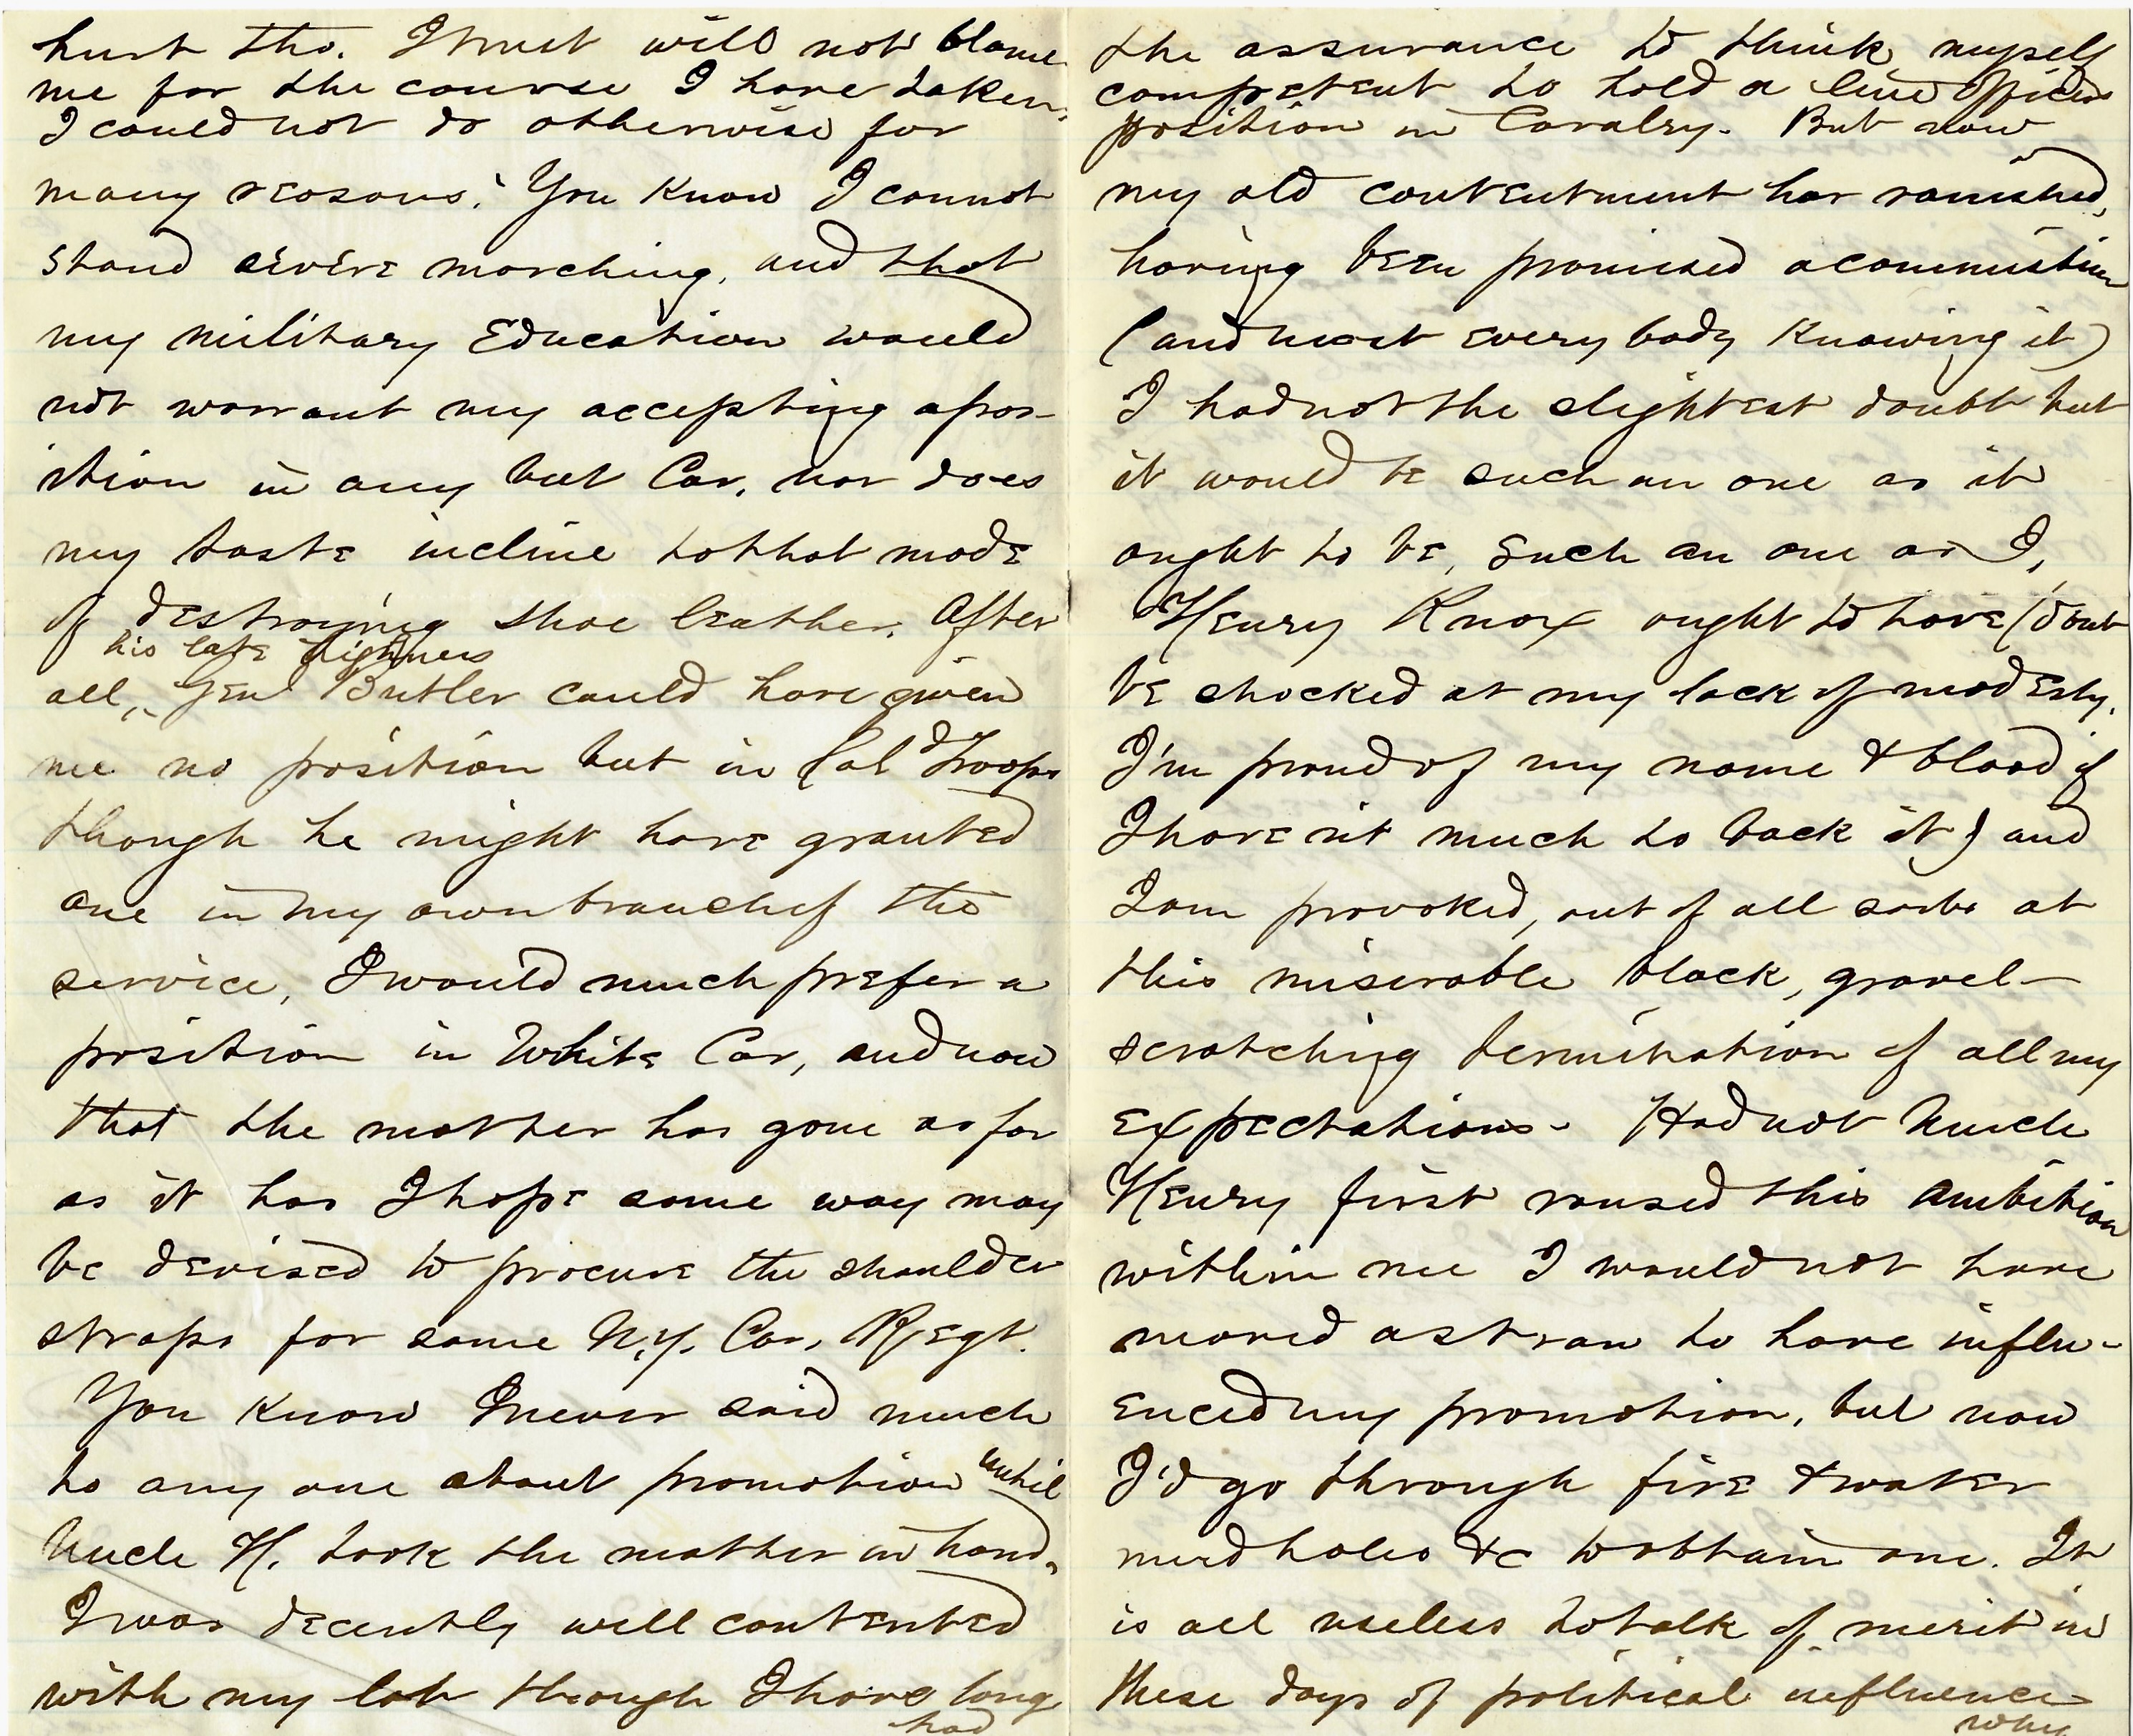 hurt tho. I trust will not blame
me for the course I have taken,
I could not do otherwise for
many reasons. You Know I cannot
stand severe marching, and that
my military Education would
not warrant my accepting a pos-
ition in any but Cav. nor does
my taste incline to that mode
of destroying shoe leather. After
his late Highness
all, Gen Butler could have given
me no position but in Col'd Troops
though he might have granted
one in my own branch of the
service, I would much prefer a
position in White Cav, and now
that the matter has gone as far
as it has I hope some way may
be devised to procure the shoulder
straps for some N.Y. Cav. Regt.
You Know I never said much
to any one about promotion until
Uncle H. took the matter in hand.
I was decently well contented
with my lot though I have long
had
the assurance to think myself
competent to hold a line Officers
position in Cavalry. But now
my old contentment has vanished,
having been promised a commission
(and most every body Knowing it)
I had not the slightest doubt but
it would be such an one as it
ought to be, such an one as I,
Henry Knox ought to have (dont
be shocked at my lack of modesty.
I'm proud of my name & blood if
I have n't much to back it) and
I am provoked, out of all sorts at
this miserable black, gravel-
scratching termination of all my
expectations. Had not Uncle
Henry first roused this ambition
within me I would not have
moved a straw to have influ-
enced my promotion, but now
I'd go through fire & water
mud holes &c to obtain one. It
is all useless to talk of merit in
these days of political influence
why